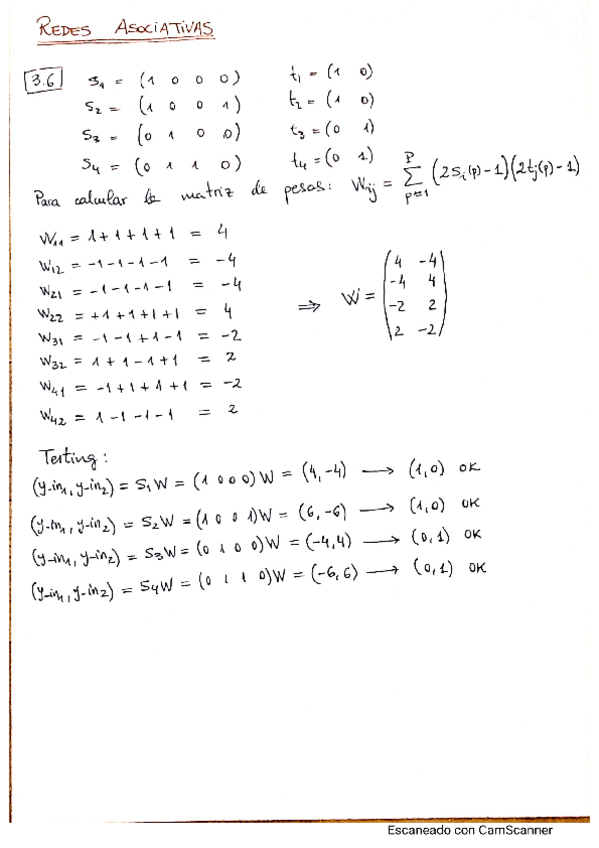 REDES ASOCIATIVAS
3.6 S1 = (1 0 0 0) t1 = (1 0)
S2 = (1 0 0 1) t2 = (1 0)
S3 = (0 1 0 0) t3 = (0 1)
S4 = (0 1 1 0) t4 = (0 1)
Para calcular la matriz de pesos: Wij = Σ_{p=1}^{P} (2Si(p)-1)(2tj(p)-1)
W11 = 1+1+1+1 = 4
W12 = -1-1-1-1 = -4
W21 = -1-1-1-1 = -4
W22 = +1+1+1+1 = 4
W31 = -1-1+1-1 = -2
W32 = 1+1-1+1 = 2
W41 = -1+1+1+1 = -2
W42 = 1-1-1-1 = 2
⇒ W = (4 -4
-4 4
-2 2
2 -2)
Testing:
(y-in1, y-in2) = S1W = (1 0 0 0)W = (4,-4) → (1,0) OK
(y-in1, y-in2) = S2W = (1 0 0 1)W = (6,-6) → (1,0) OK
(y-in1, y-in2) = S3W = (0 1 0 0)W = (-4,4) → (0,1) OK
(y-in1, y-in2) = S4W = (0 1 1 0)W = (-6,6) → (0,1) OK
Escaneado con CamScanner